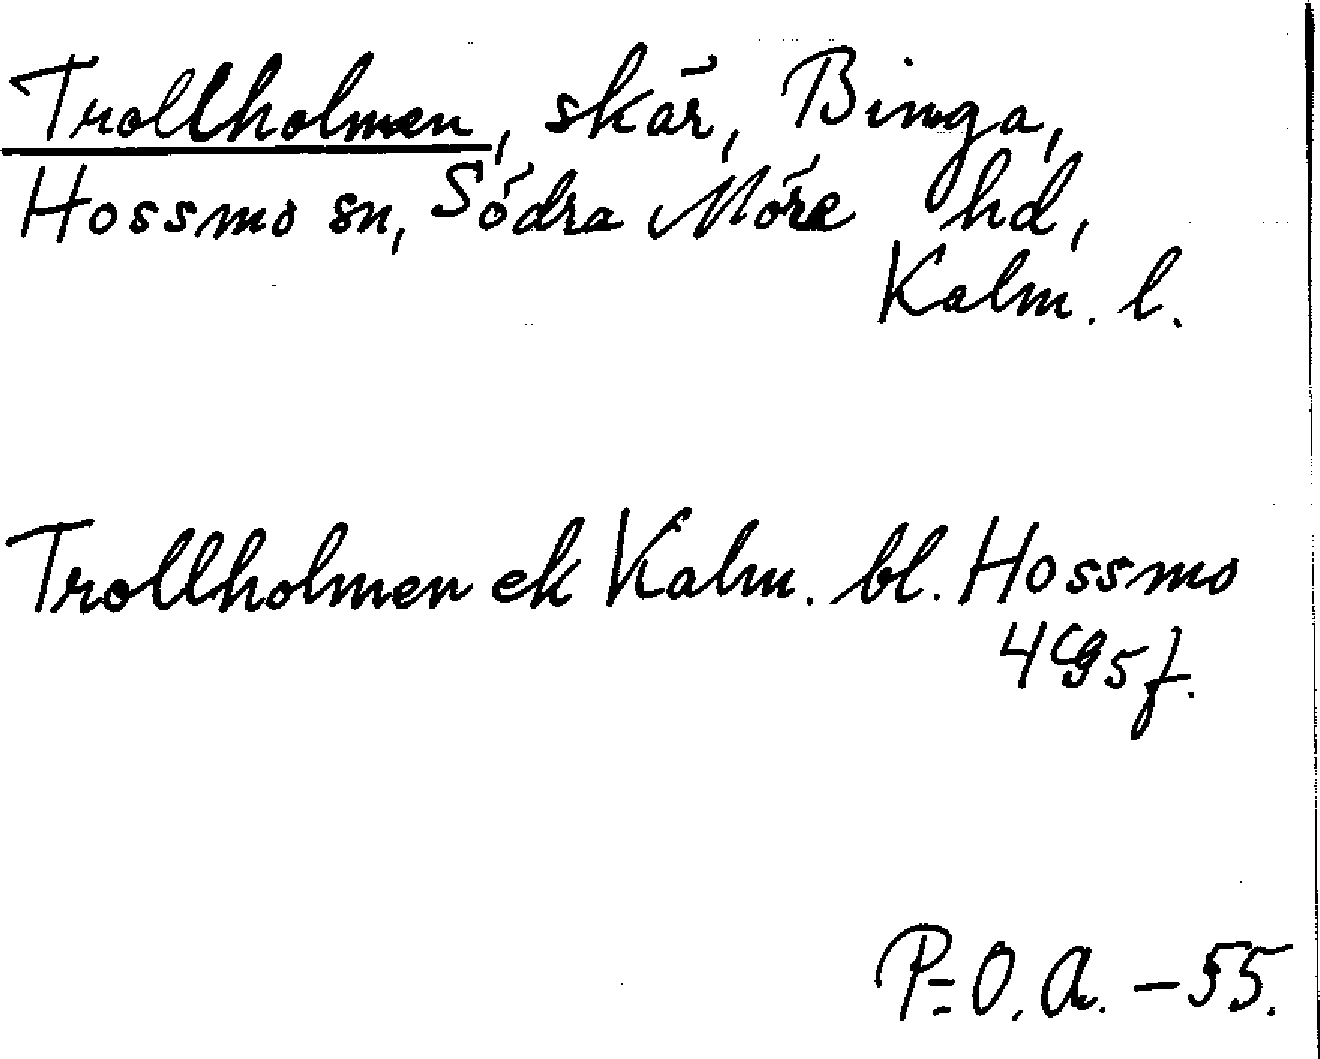 Trollholmen, skär, Binga,
Hossmo sn, Södra Möre hd,
Kalm. l.
Trollholmen ek Kalm. bl. Hossmo
4g5f.
P-O. A. - 55.